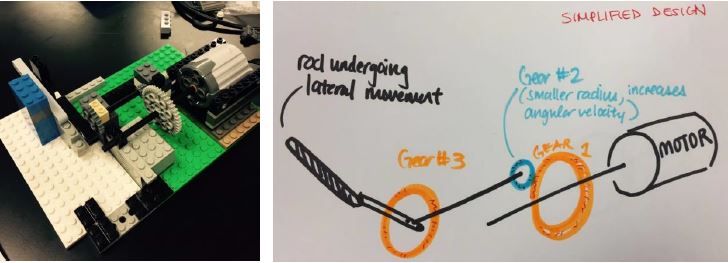 SIMPLIFIED DESIGN
rod undergoing
lateral movement
Gear #2
(smaller radius, increases
angular velocity)
Gear #3
GEAR 1
MOTOR